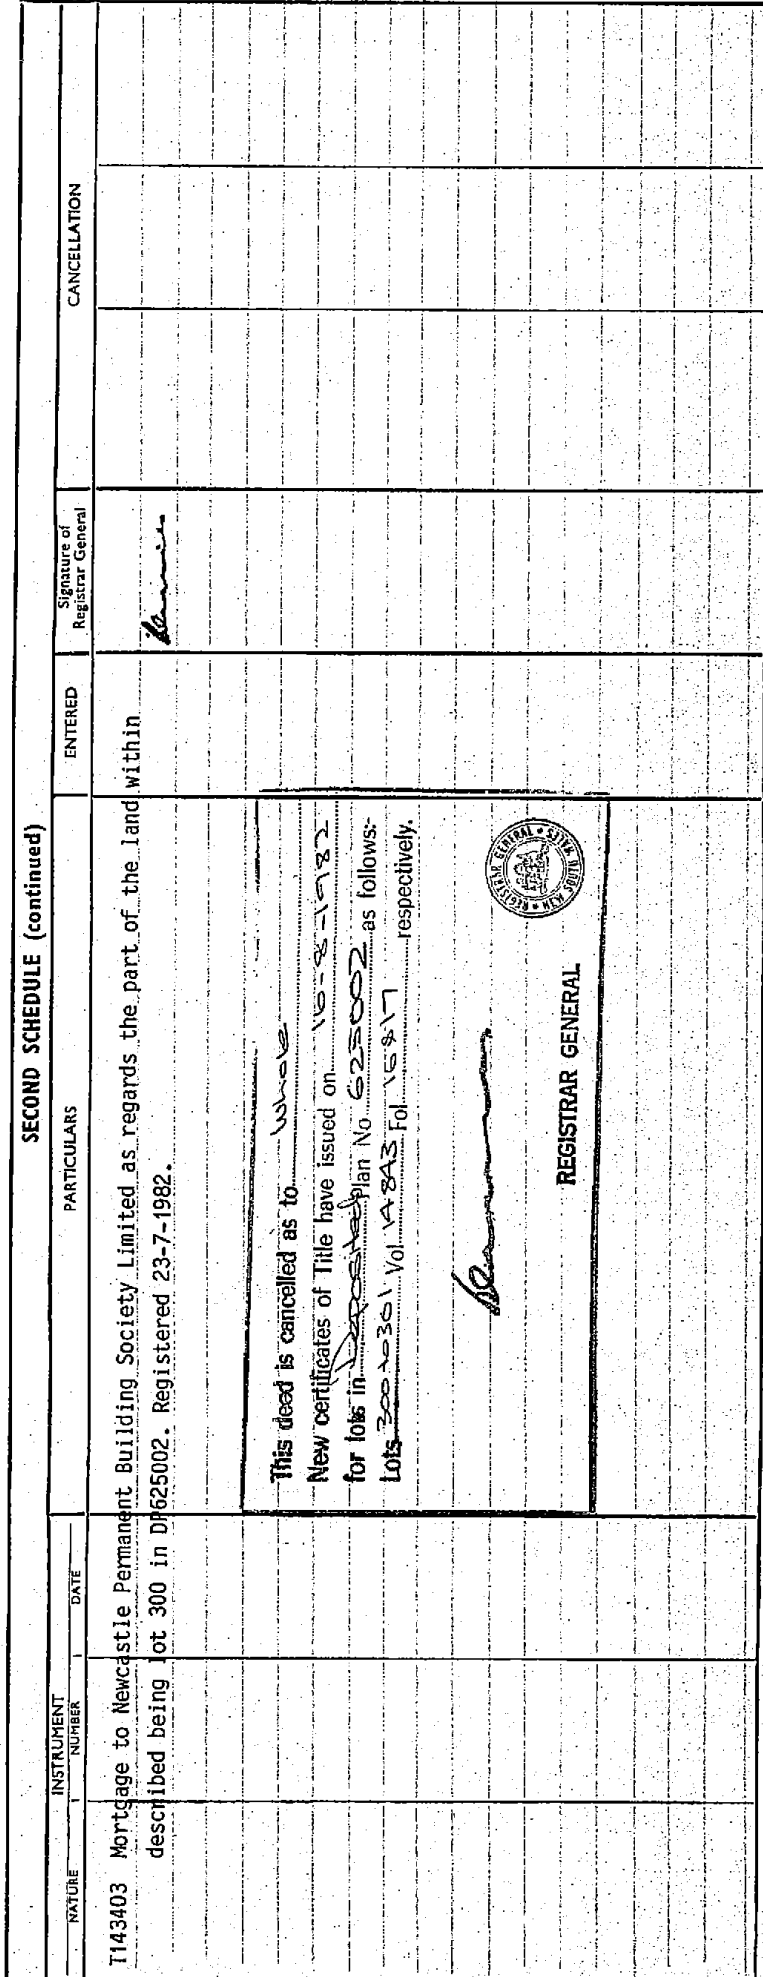 SECOND SCHEDULE (continued)
INSTRUMENT
NATURE NUMBER DATE
PARTICULARS
ENTERED
Signature of
Registrar General
CANCELLATION
T143403 Mortgage to Newcastle Permanent Building Society Limited as regards the part of the land within
described being lot 300 in DP625002. Registered 23-7-1982.
This deed is cancelled as to whole
New certificates of Title have issued on 16-8-1982
for lots in Deposited Plan No 625002 as follows:-
Lots 300 to 301 Vol 14843 Fol 16&17 respectively.
REGISTRAR GENERAL
REGISTRAR GENERAL • NEW SOUTH WALES